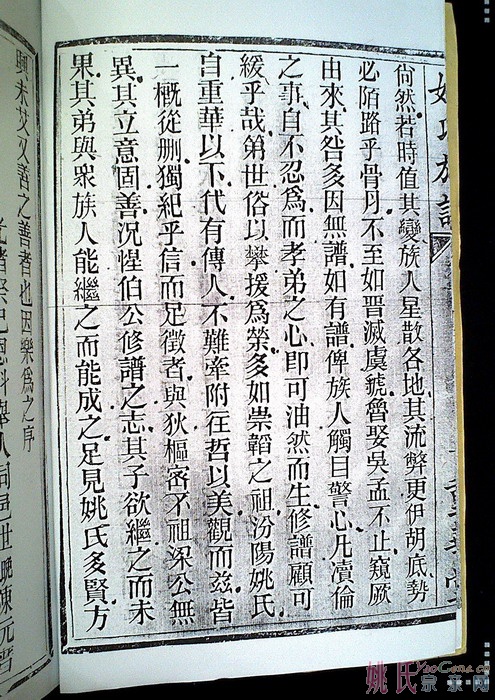 姚氏族譜
尚然若時值其變族人星散各地其流弊更伊胡底勢
必陌路乎骨丹不至如晋滅虞虢魯娶吳孟不止窺厥
由來其咎多因無譜如有譜俾族人觸目警心凡瀆倫
之事自不忍爲而孝弟之心即可油然而生修譜顧可
緩乎哉第世俗以攀援爲榮多如崇韜之祖汾陽姚氏
自重華以下代有傳人不難牽附往哲以美觀而茲皆
一概從刪獨紀乎信而足徵者與狄樞密不祖梁公無
異其立意固善況惺伯公修譜之志其子欲繼之而未
果其弟與眾族人能繼之而能成之足見姚氏多賢方
興未艾又善之善者也因樂爲之序
光緒癸巳恩科舉人同邑世晚陳元
姚氏宗亲网